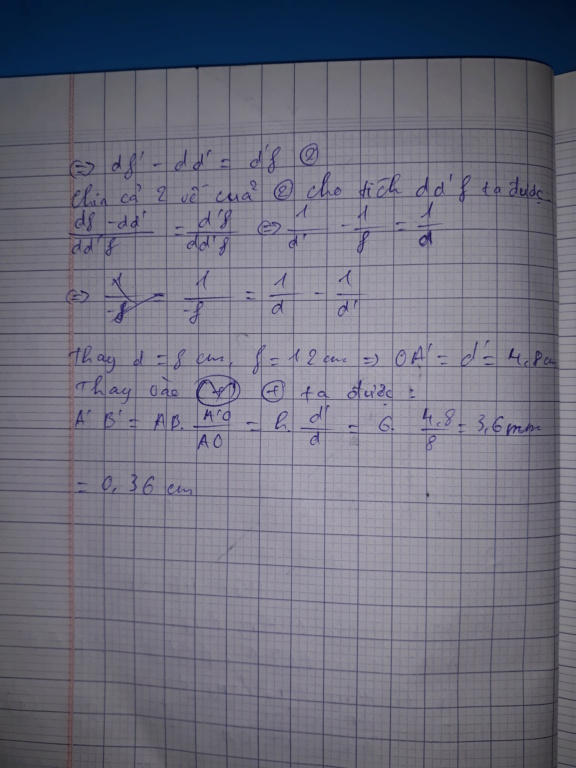 ⇔ df' - dd' = d'f ②
Chia cả 2 vế của ② cho tích dd'f ta được
df - dd' / dd'f = d'f / dd'f ⇔ 1/d' - 1/f = 1/d
⇔ 1/-f = 1/-f = 1/d - 1/d'
Thay d = 8 cm, f = 12 cm ⇒ OA' = d' = 4,8 cm
Thay vào ① ta được :
A'B' = AB. A'O/AO = h. d'/d = 6. 4,8/8 = 3,6 mm
= 0,36 cm